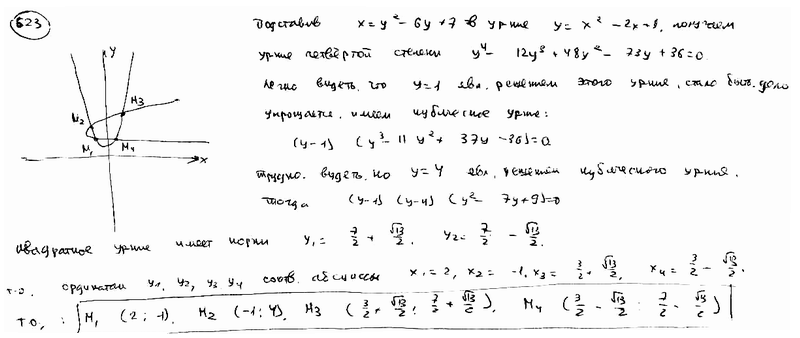 623
Подставив x = y² - 6y + 7 в ур-ние y = x² - 2x + 1, получаем
ур-ние четвёртой степени y⁴ - 12y³ + 48y² - 73y + 36 = 0
легко видеть, что y=1 явл. решением этого ур-ния, стало быть, дело
упрощается, имеем кубическое ур-ние:
(y-1) (y³ - 11y² + 37y - 36) = 0
трудно видеть, но y=4 явл. решением кубического ур-ния.
тогда (y-1) (y-4) (y² - 7y + 9) = 0
квадратное ур-ние имеет корни y₁ = 7/2 + √13/2, y₂ = 7/2 - √13/2.
т.о. ординатам y₁, y₂, y₃ y₄ соотв. абсциссы x₁ = 2, x₂ = -1, x₃ = 3/2 + √13/2, x₄ = 3/2 - √13/2.
т.о. : M₁ (2; -1), M₂ (-1; 4), M₃ (3/2 + √13/2; 7/2 + √13/2), M₄ (3/2 - √13/2; 7/2 - √13/2)
y
M₃
M₂
M₁ M₄
x